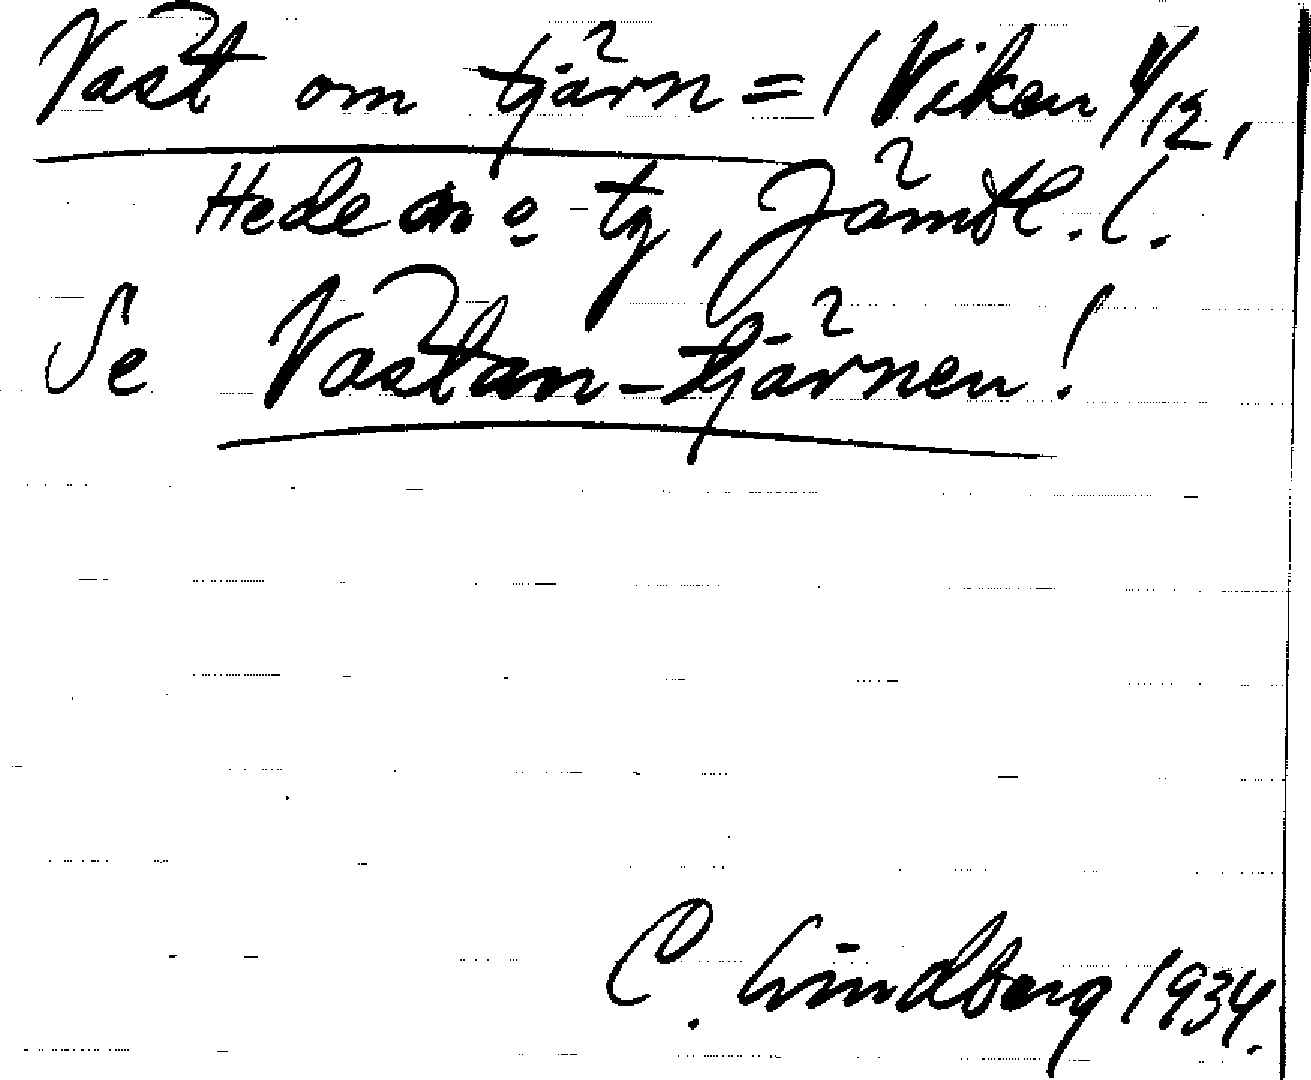 Väst om tjärn = / Viken 1/12,
Hedem o tg, Jämtl. l.
Se Västan-tjärnen!
C. Lindberg 1934.